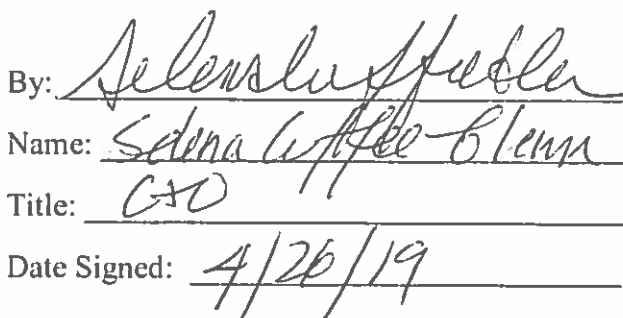 By:
Name: Selena Cuffee-Glenn
Title: CAO
Date Signed: 4/26/19